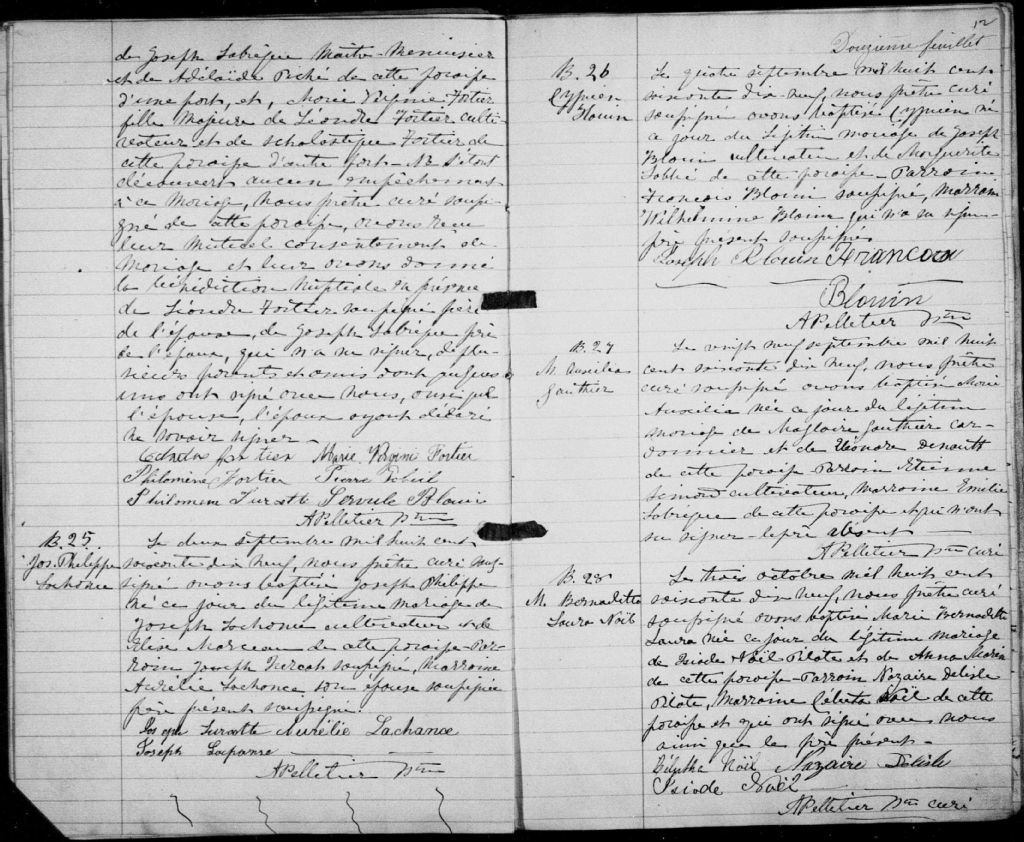 de Joseph Labrèque Maître-Menuisier
et de Adélaïde Piché de cette paroisse
d'une part, et, Marie Virginie Fortier
fille majeure de Léandre Fortier culti-
vateur et de Scholastique Fortier de
cette paroisse d'autre part - Ne s'étant
découvert aucun empêchement
à ce Mariage, Nous prêtre curé soussi-
gné de cette paroisse, avons reçu
leur mutuel consentement de
Mariage et leur avons donné
la bénédiction nuptiale en présence
de Léandre Fortier soussigné père
de l'épouse, de Joseph Labrèque père
de l'époux, qui n'a su signer, de plu-
sieurs parents et amis dont quelques
uns ont signé avec nous, ainsi que
l'épouse, l'époux ayant déclaré
ne savoir signer -
Fortier Marie Virginie Fortier
Philomène Fortier Pierre
Philomène Turcotte Servule Blouin
A Pelletier Ptre
B. 25.
Jos. Philippe
Lachance
Le deux septembre mil huit cent
soixante dix neuf, nous prêtre curé sous-
signé avons baptisé Joseph Philippe
né ce jour du légitime mariage de
Joseph Lachance cultivateur et de
Elise Marceau de cette paroisse - Par-
rain Joseph Turcot soussigné, Marraine
Aurélie Lachance, son épouse soussignée
père présent soussigné.
Joseph Turcotte Aurélie Lachance
Joseph Lachance
A Pelletier Ptre
12
Douzième feuillet
B. 26
Cyprien
Blouin
Le quatre septembre mil huit cent
soixante dix-neuf, nous prêtre curé
soussigné avons baptisé Cyprien né
ce jour du légitime mariage de Joseph
Blouin cultivateur et de Marguerite
de cette paroisse - Parrain
François Blouin soussigné, Marraine
Wilhelmine Blouin qui n'a su signer
père présent soussigné
Joseph Blouin Francois
Blouin
A Pelletier Ptre
B. 27
M. Auxilia
Gauthier
Le vingt neuf septembre mil huit
cent soixante dix neuf, nous prêtre
curé soussigné avons baptisé Marie
Auxilia née ce jour du légitime
mariage de Magloire Gauthier cor-
donnier et de Eléonore Denault
de cette paroisse Parrain Etienne
Simard cultivateur, Marraine Emélie
Labrèque de cette paroisse et qui n'ont
su signer - le père absent
A Pelletier Ptre curé
B. 28
M. Bernadette
Laura Noël
Le trois octobre mil huit cent
soixante dix neuf, nous prêtre curé
soussigné avons baptisé Marie Bernadette
Laura née ce jour du légitime mariage
de Isiode Noël Pilote et de Anna Morin
de cette paroisse - Parrain Nazaire Delisle
Pilote, Marraine Noël de cette
paroisse et qui ont signé avec nous
ainsi que le père présent -
Noël Nazaire Delisle
Isiode Noël
A Pelletier Ptre curé